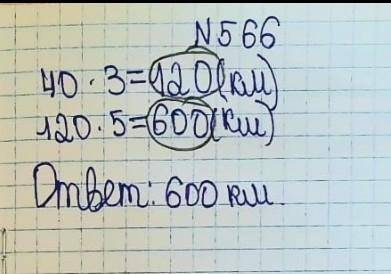 N566
40 · 3 = 120 (км)
120 · 5 = 600 (км)
Ответ: 600 км.